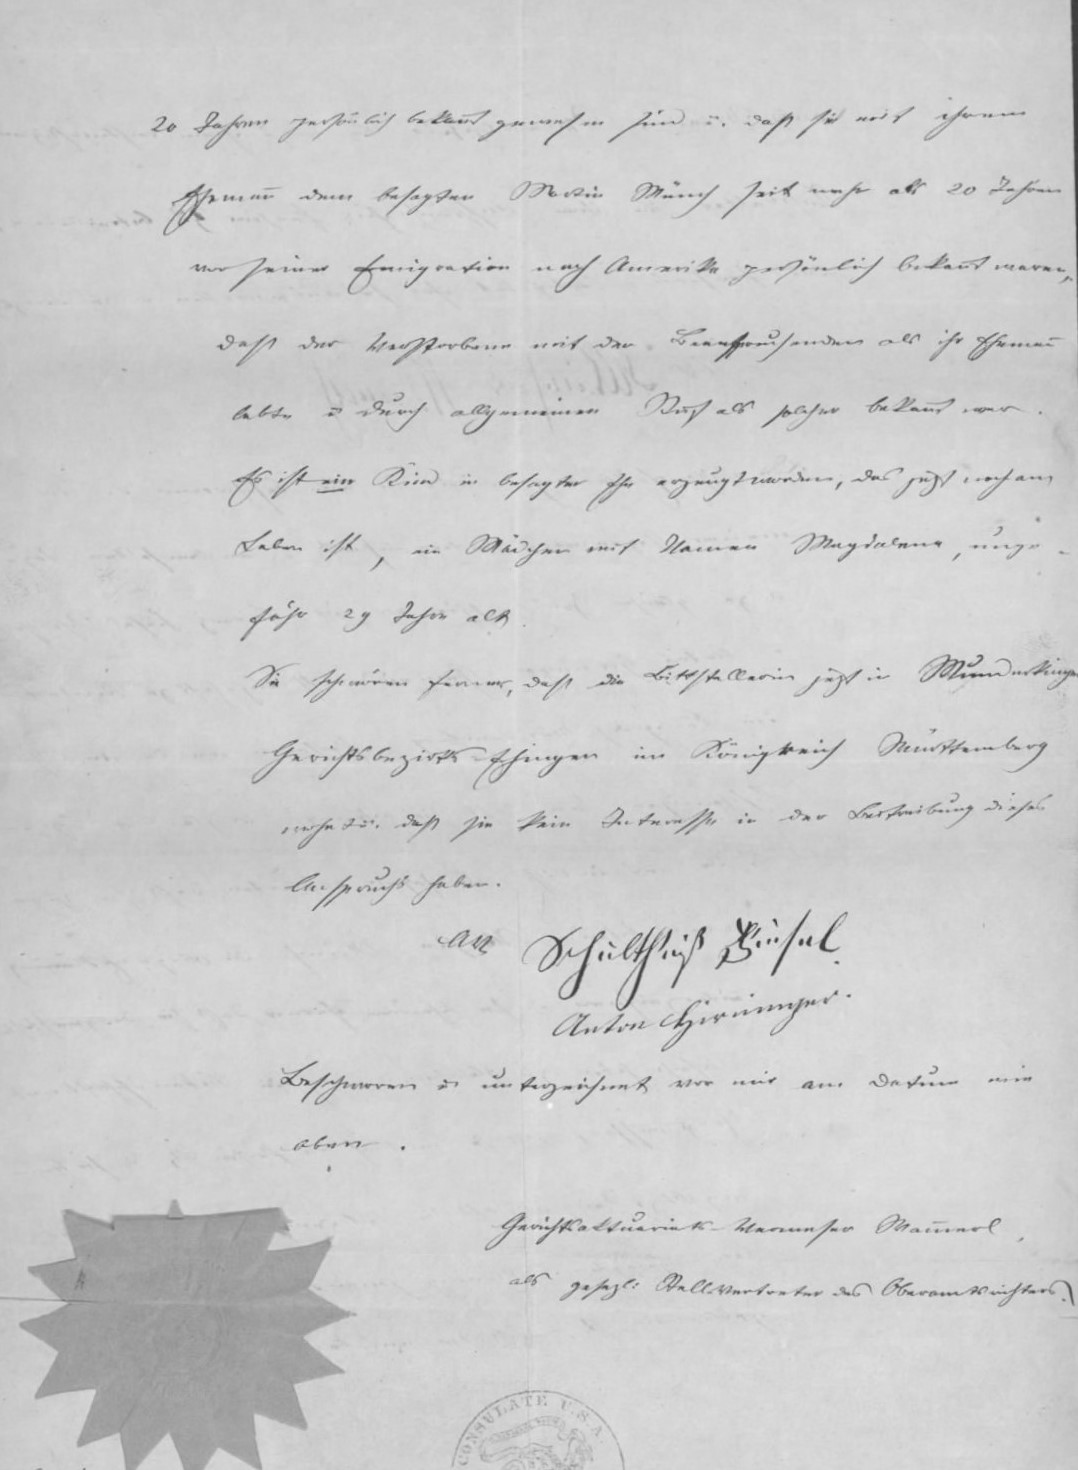 20 Jahren persönlich bekannt gewesen sind u. daß sie mit ihrem
Ehemann dem besagten Martin Münch seit mehr als 20 Jahren
vor seiner Emigration nach Amerika persönlich bekannt waren,
daß der Verstorbene mit der Beanspruchenden als ihr Ehemann
lebte u durch allgemeinen Ruf als solcher bekannt war.
Es ist ein Kind in besagter Ehe erzeugt worden, das jetzt noch am
Leben ist, ein Mädchen mit Namen Magdalena, unge-
fähr 29 Jahre alt.
Sie schwören ferner, daß die Bittstellerin jetzt in Munderkingen
Gerichtsbezirks Ehingen im Königreich Württemberg
wohnt u. daß sie kein Interesse in der Betreibung dieses
Anspruchs haben.
Schultheiß
Anton
Beschworen u unterzeichnet vor mir am Datum wie
oben.
Gerichtsaktuariats-Verweser
als gesezl: Stellvertreter des Oberamtsrichters.
CONSULATE U.S.A.